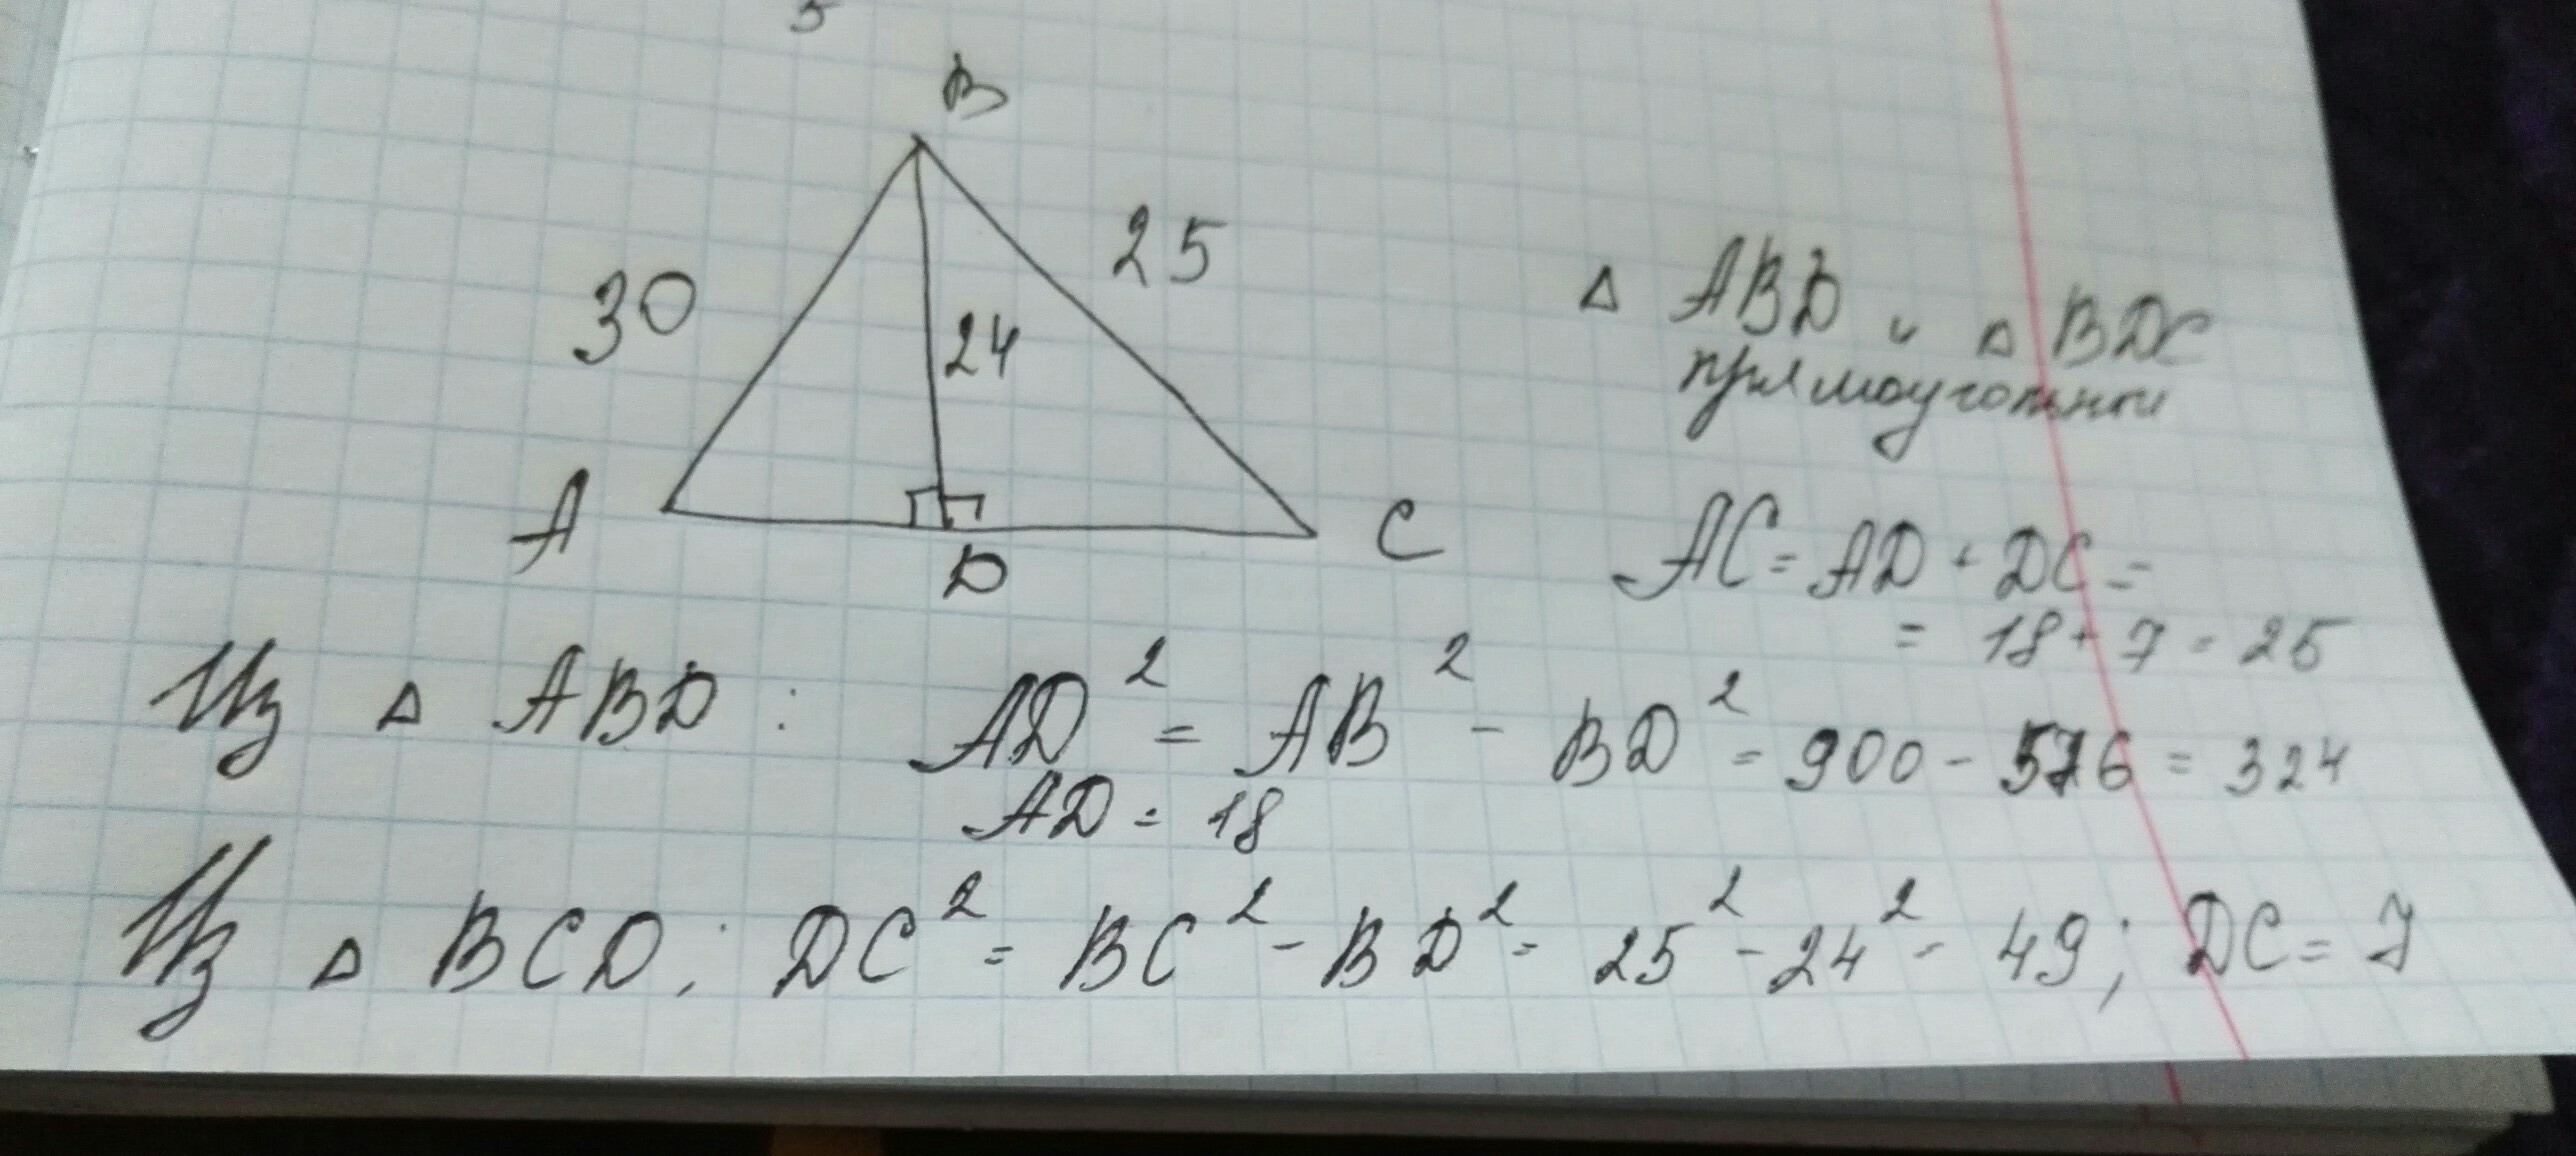 5
B
30
25
24
A
D
C
△ ABD и △ BDC
прямоугольные
AC = AD + DC =
= 18 + 7 = 25
Из △ ABD : AD² = AB² - BD² = 900 - 576 = 324
AD = 18
Из △ BCD : DC² = BC² - BD² = 25² - 24² = 49; DC = 7